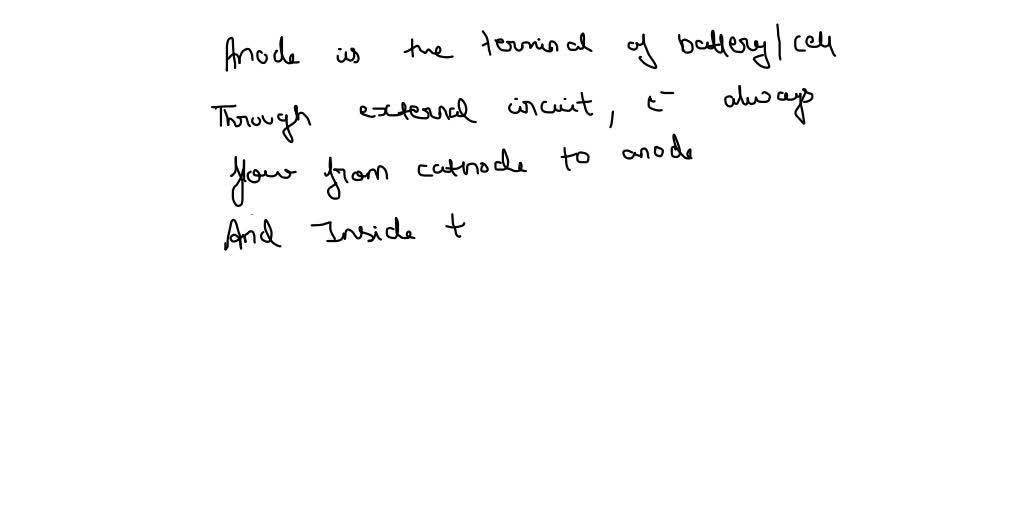 Anode is the terminal of battery/cell
Through external circuit, e⁻ always
flow from cathode to anode
And Inside t